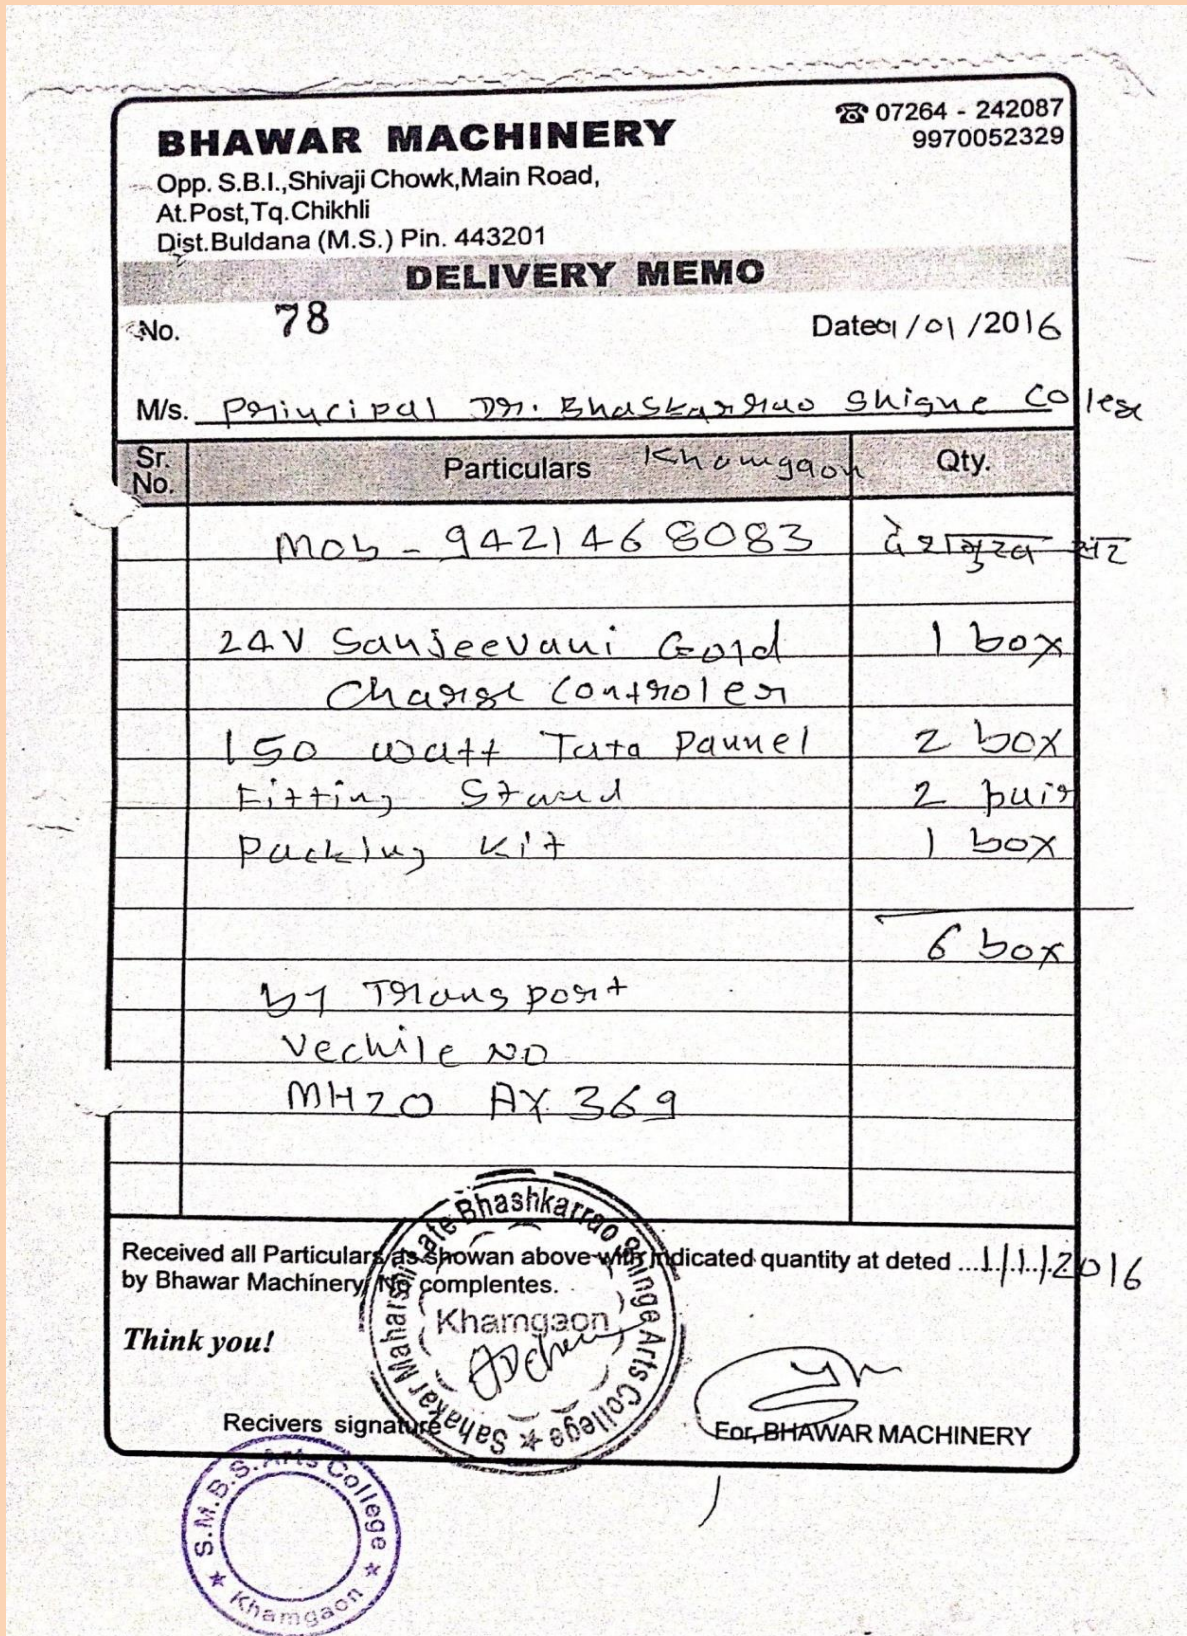 BHAWAR MACHINERY
☎ 07264 - 242087
9970052329
Opp. S.B.I.,Shivaji Chowk,Main Road,
At.Post,Tq.Chikhli
Dist.Buldana (M.S.) Pin. 443201
DELIVERY MEMO
No. 78
Date 01/01/2016
M/s. Principal Dr. Bhaskarrao Shigne College
Khamgaon
Sr. No. Particulars Qty.
Mob - 9421468083 देशमुख सर
24V Sanjeevani Gold 1 box
Charge Controler
150 watt Tata Pannel 2 box
Fitting Stand 2 pair
Packing Kit 1 box
6 box
by Transport
Vechile NO
MH20 AY 369
Received all Particulars as Showan above with indicated quantity at deted ....1/1/2016
by Bhawar Machinery, No complentes.
Think you!
Sahakar Maharshi Late Bhashkarrao Shinge Arts College
Khamgaon
Recivers signature
For, BHAWAR MACHINERY
S.M.B.S. Arts College
Khamgaon